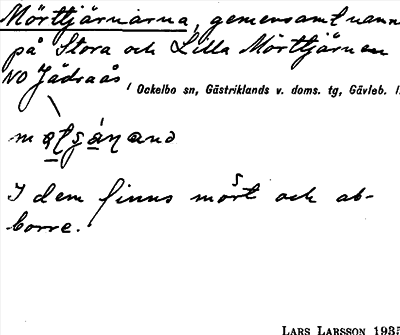 Mörttjärnarna, gemensamt namn
på Stora och Lilla Mörttjärnen
NO Jädraås,
Ockelbo sn, Gästriklands v. doms. tg, Gävleb. l
I dem finns mört och ab-
borre.
LARS LARSSON 1935